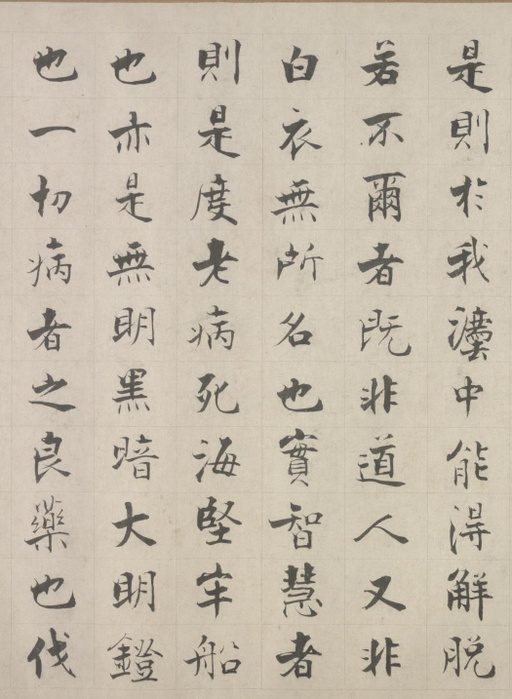 是則於我灋中能得解脱
若不爾者既非道人又非
白衣無所名也實智慧者
則是度老病死海堅牢船
也亦是無明黑暗大明鐙
也一切病者之良藥也伐